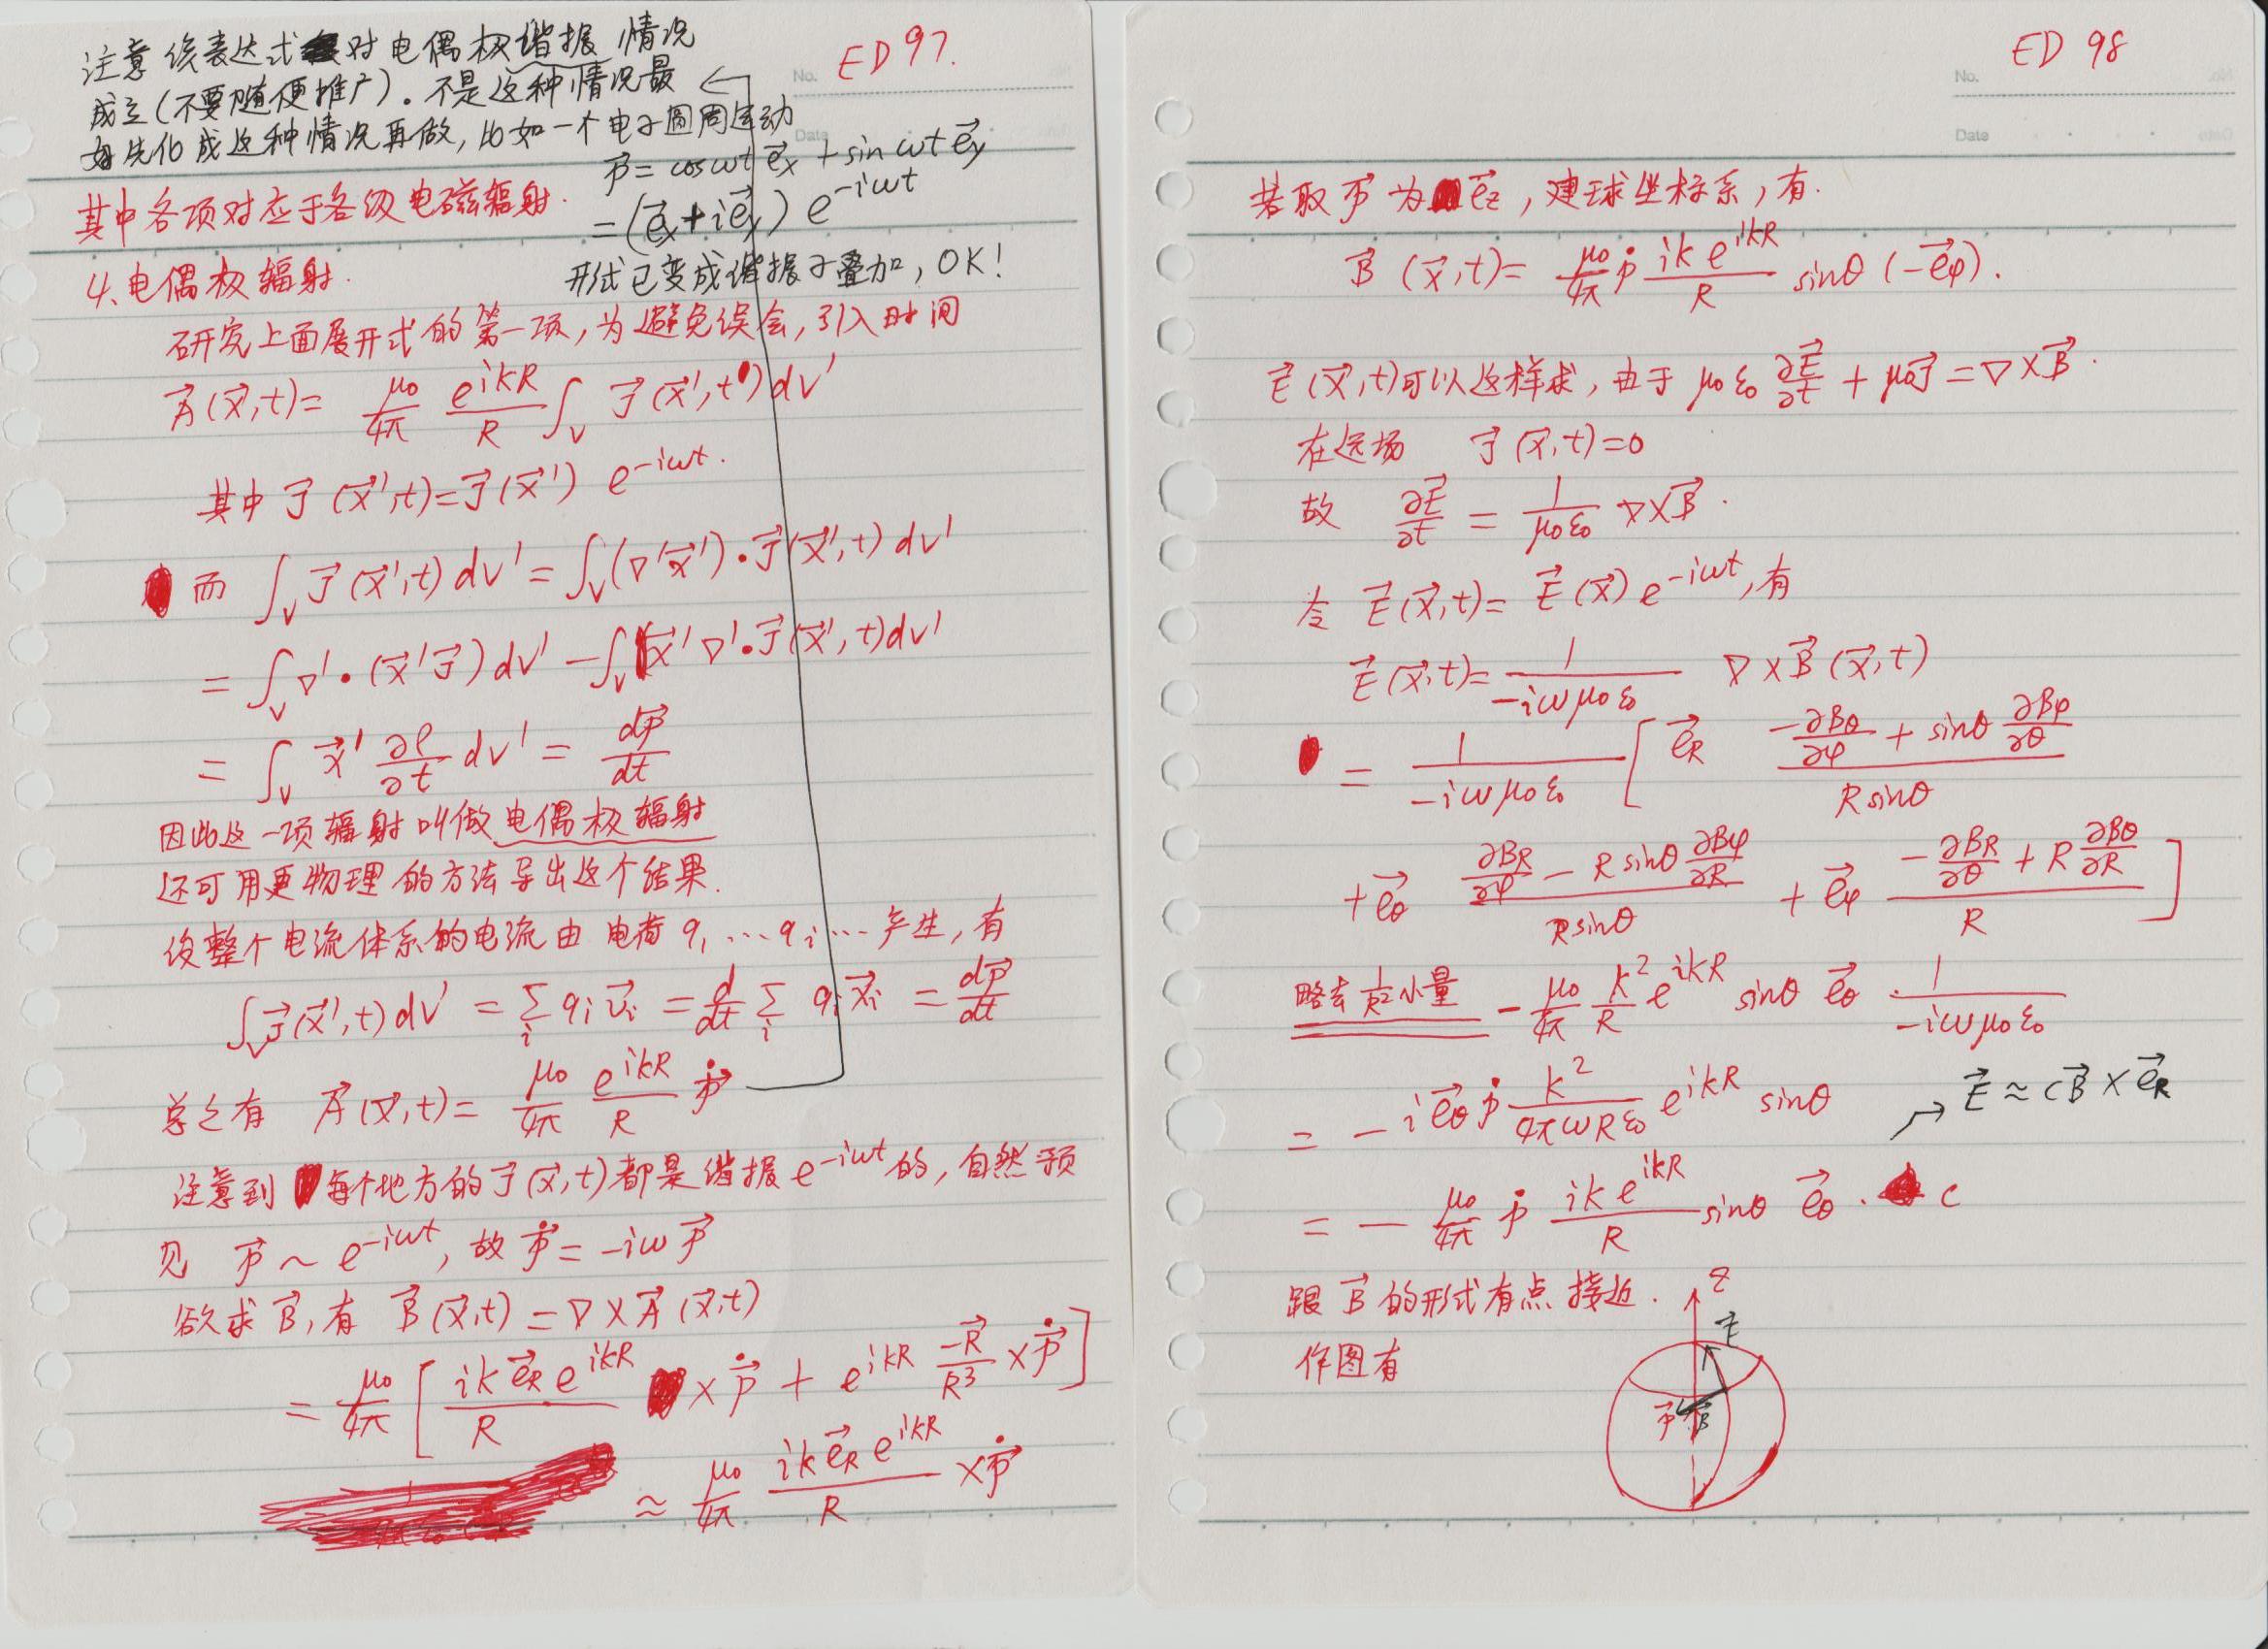 ED 97.
注意 该表达式对电偶极谐振 情况
成立(不要随便推广). 不是这种情况最
好先化成这种情况再做, 比如一个电子圆周运动
No.
Date
p⃗ = cosωt e⃗x + sinωt e⃗y
= (e⃗x + i e⃗y) e^{-iωt}
形式已变成谐振子叠加, OK!
其中各项对应于各级电磁辐射.
4. 电偶极辐射.
研究上面展开式的第一项, 为避免误会, 引入时间
A⃗(x⃗,t) = μ₀/4π e^{ikR}/R ∫_V J⃗(x⃗',t') dV'
其中 J⃗(x⃗',t) = J⃗(x⃗') e^{-iωt}.
而 ∫_V J⃗(x⃗',t) dV' = ∫_V (∇'x⃗')·J⃗(x⃗',t) dV'
= ∫_V ∇'·(x⃗'J⃗) dV' − ∫_V x⃗'∇'·J⃗(x⃗',t) dV'
= ∫_V x⃗' ∂ρ/∂t dV' = dp⃗/dt
因此这一项辐射叫做电偶极辐射
还可用更物理的方法导出这个结果.
设整个电流体系的电流由电荷 q₁ … qᵢ … 产生, 有
∫_V J⃗(x⃗',t) dV' = Σᵢ qᵢv⃗ᵢ = d/dt Σᵢ qᵢx⃗ᵢ = dp⃗/dt
总之有 A⃗(x⃗,t) = μ₀/4π e^{ikR}/R ṗ⃗
注意到 每个地方的 J⃗(x⃗,t) 都是谐振 e^{-iωt} 的, 自然预
见 p⃗ ~ e^{-iωt}, 故 ṗ⃗ = -iω p⃗
欲求 B⃗, 有 B⃗(x⃗,t) = ∇×A⃗(x⃗,t)
= μ₀/4π [ ik e⃗R e^{ikR}/R × ṗ⃗ + e^{ikR} -R⃗/R³ × ṗ⃗ ]
≈ μ₀/4π ik e⃗R e^{ikR}/R × ṗ⃗
ED 98
No.
Date
若取 p⃗ 为 e⃗z, 建球坐标系, 有.
B⃗(x⃗,t) = μ₀/4π ṗ ik e^{ikR}/R sinθ (-e⃗φ).
E⃗(x⃗,t)可以这样求, 由于 μ₀ε₀ ∂E⃗/∂t + μ₀J⃗ = ∇×B⃗.
在远场 J⃗(x⃗,t)=0
故 ∂E⃗/∂t = 1/μ₀ε₀ ∇×B⃗.
令 E⃗(x⃗,t) = E⃗(x⃗) e^{-iωt}, 有
E⃗(x⃗,t) = 1/-iωμ₀ε₀ ∇×B⃗(x⃗,t)
= 1/-iωμ₀ε₀ [ e⃗R (-∂Bθ/∂φ + sinθ ∂Bφ/∂θ)/Rsinθ
+ e⃗θ (∂BR/∂φ − R sinθ ∂Bφ/∂R)/Rsinθ + e⃗φ (-∂BR/∂θ + R ∂Bθ/∂R)/R ]
略去 1/R² 小量 − μ₀/4π k²/R e^{ikR} sinθ e⃗θ · 1/-iωμ₀ε₀
= − i e⃗θ ṗ k²/4πωRε₀ e^{ikR} sinθ
E⃗ ≈ cB⃗ × e⃗R
= − μ₀/4π ṗ ik e^{ikR}/R sinθ e⃗θ · c
跟 B⃗ 的形式有点接近.
作图有
z
E⃗
p⃗
B⃗